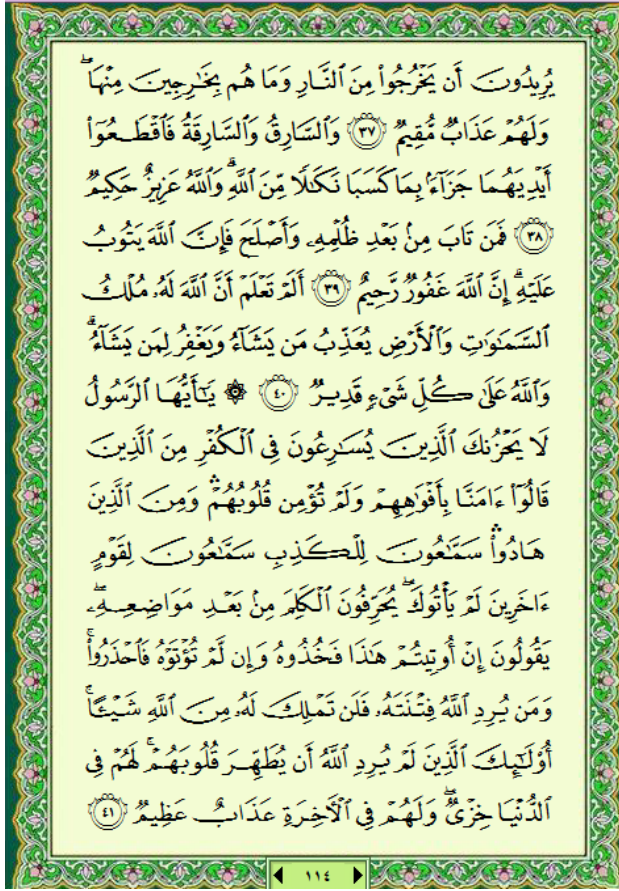 يُرِيدُونَ أَن يَخْرُجُوا۟ مِنَ ٱلنَّارِ وَمَا هُم بِخَـٰرِجِينَ مِنْهَا ۖ
وَلَهُمْ عَذَابٌ مُّقِيمٌ ﴿٣٧﴾ وَٱلسَّارِقُ وَٱلسَّارِقَةُ فَٱقْطَعُوٓا۟
أَيْدِيَهُمَا جَزَآءًۢ بِمَا كَسَبَا نَكَـٰلًا مِّنَ ٱللَّهِ ۗ وَٱللَّهُ عَزِيزٌ حَكِيمٌ
﴿٣٨﴾ فَمَن تَابَ مِنۢ بَعْدِ ظُلْمِهِۦ وَأَصْلَحَ فَإِنَّ ٱللَّهَ يَتُوبُ
عَلَيْهِ ۗ إِنَّ ٱللَّهَ غَفُورٌ رَّحِيمٌ ﴿٣٩﴾ أَلَمْ تَعْلَمْ أَنَّ ٱللَّهَ لَهُۥ مُلْكُ
ٱلسَّمَـٰوَٰتِ وَٱلْأَرْضِ يُعَذِّبُ مَن يَشَآءُ وَيَغْفِرُ لِمَن يَشَآءُ ۗ
وَٱللَّهُ عَلَىٰ كُلِّ شَىْءٍ قَدِيرٌ ﴿٤٠﴾ ۞ يَـٰٓأَيُّهَا ٱلرَّسُولُ
لَا يَحْزُنكَ ٱلَّذِينَ يُسَـٰرِعُونَ فِى ٱلْكُفْرِ مِنَ ٱلَّذِينَ
قَالُوٓا۟ ءَامَنَّا بِأَفْوَٰهِهِمْ وَلَمْ تُؤْمِن قُلُوبُهُمْ ۛ وَمِنَ ٱلَّذِينَ
هَادُوا۟ ۛ سَمَّـٰعُونَ لِلْكَذِبِ سَمَّـٰعُونَ لِقَوْمٍ
ءَاخَرِينَ لَمْ يَأْتُوكَ ۖ يُحَرِّفُونَ ٱلْكَلِمَ مِنۢ بَعْدِ مَوَاضِعِهِۦ ۖ
يَقُولُونَ إِنْ أُوتِيتُمْ هَـٰذَا فَخُذُوهُ وَإِن لَّمْ تُؤْتَوْهُ فَٱحْذَرُوا۟ ۚ
وَمَن يُرِدِ ٱللَّهُ فِتْنَتَهُۥ فَلَن تَمْلِكَ لَهُۥ مِنَ ٱللَّهِ شَيْـًٔا ۚ
أُو۟لَـٰٓئِكَ ٱلَّذِينَ لَمْ يُرِدِ ٱللَّهُ أَن يُطَهِّرَ قُلُوبَهُمْ ۚ لَهُمْ فِى
ٱلدُّنْيَا خِزْىٌ ۖ وَلَهُمْ فِى ٱلْـَٔاخِرَةِ عَذَابٌ عَظِيمٌ ﴿٤١﴾
١١٤